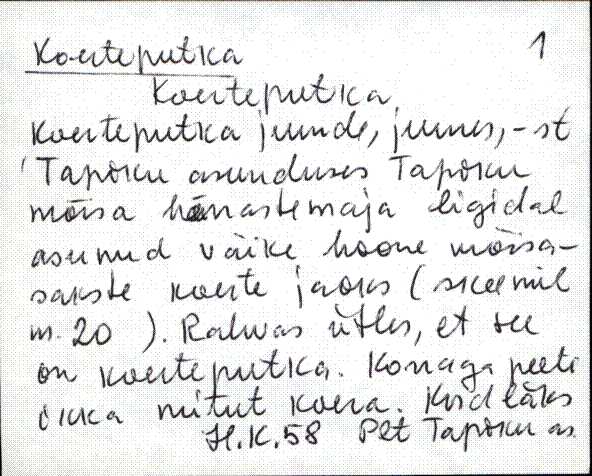 Koerteputka 1
Koerteputka,
Koerteputka juurde, juures, -st
Tapiku asunduses Tapiku
mõisa hõnastemaja ligidal
asunud väike hoone mõisa-
sakste koerte jaoks (skeemil
nr. 20 ). Rahvas ütles, et see
on koerteputka. Korraga peeti
ikka mitut koera. Kord läks
H.K. 58 Plt Tapiku as.